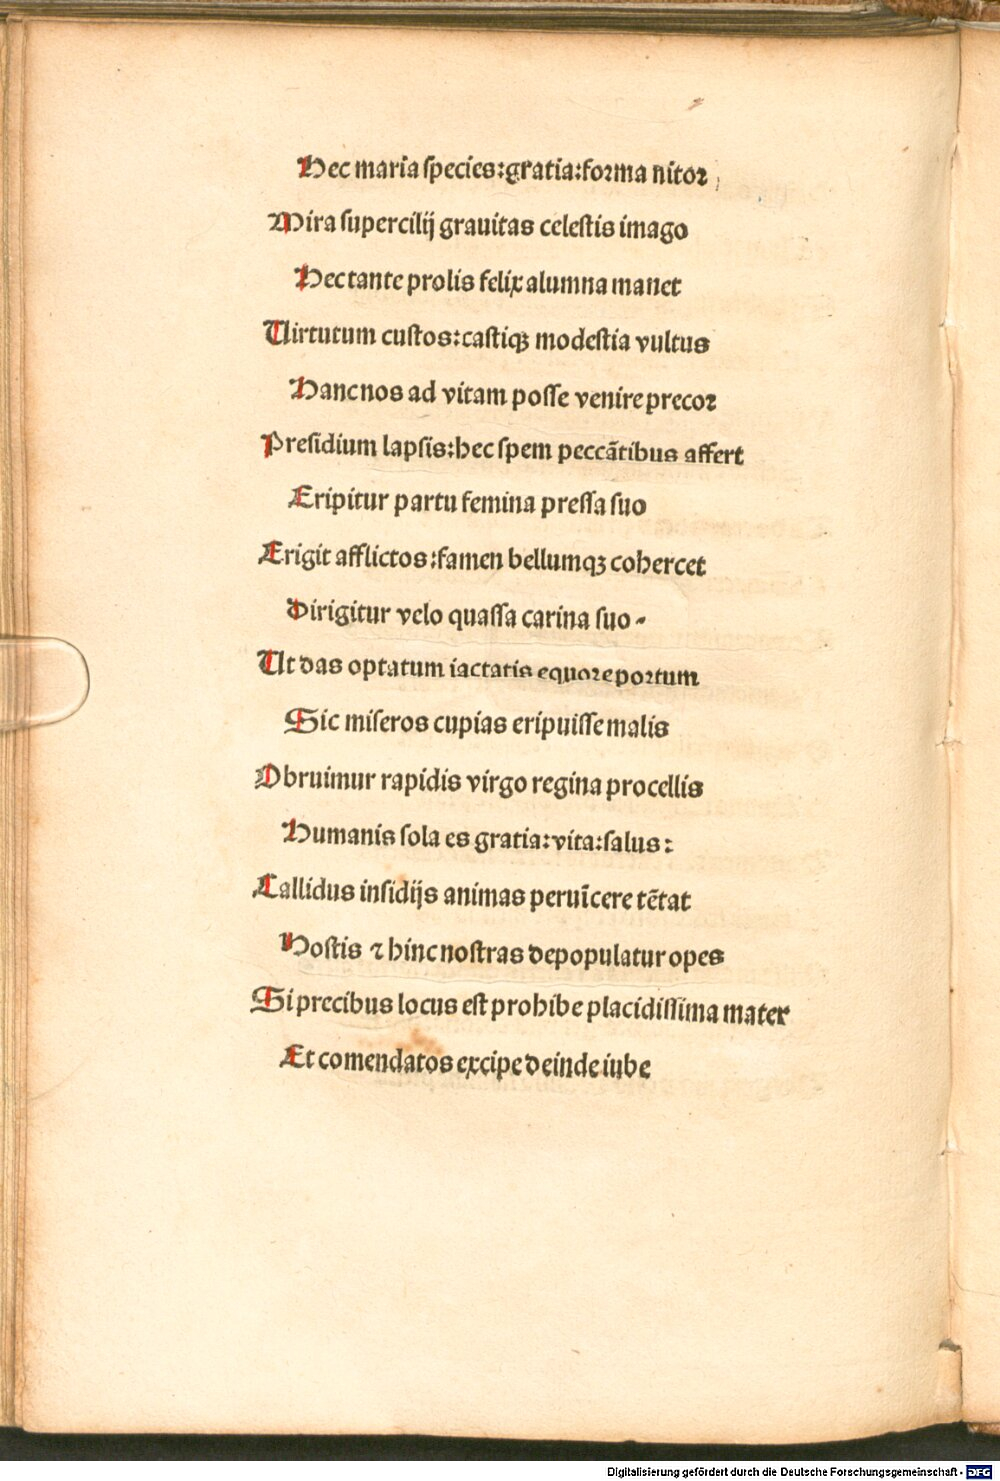 Hec maria species:gratia:forma nitor
Mira supercilij grauitas celestis imago
Hec tante prolis felix alumna manet
Uirtutum custos:castiqꝫ modestia vultus
Hanc nos ad vitam posse venire precor
Presidium lapsis:hec spem peccãtibus affert
Eripitur partu femina pressa suo
Erigit afflictos:famen bellumqꝫ cohercet
Dirigitur velo quassa carina suo
Ut das optatum iactatis equore portum
Sic miseros cupias eripuisse malis
Obruimur rapidis virgo regina procellis
Humanis sola es gratia:vita:salus:
Callidus insidijs animas peruĩcere tẽtat
Hostis ⁊ hinc nostras depopulatur opes
Si precibus locus est prohibe placidissima mater
Et comendatos excipe deinde iube
Digitalisierung gefördert durch die Deutsche Forschungsgemeinschaft - DFG